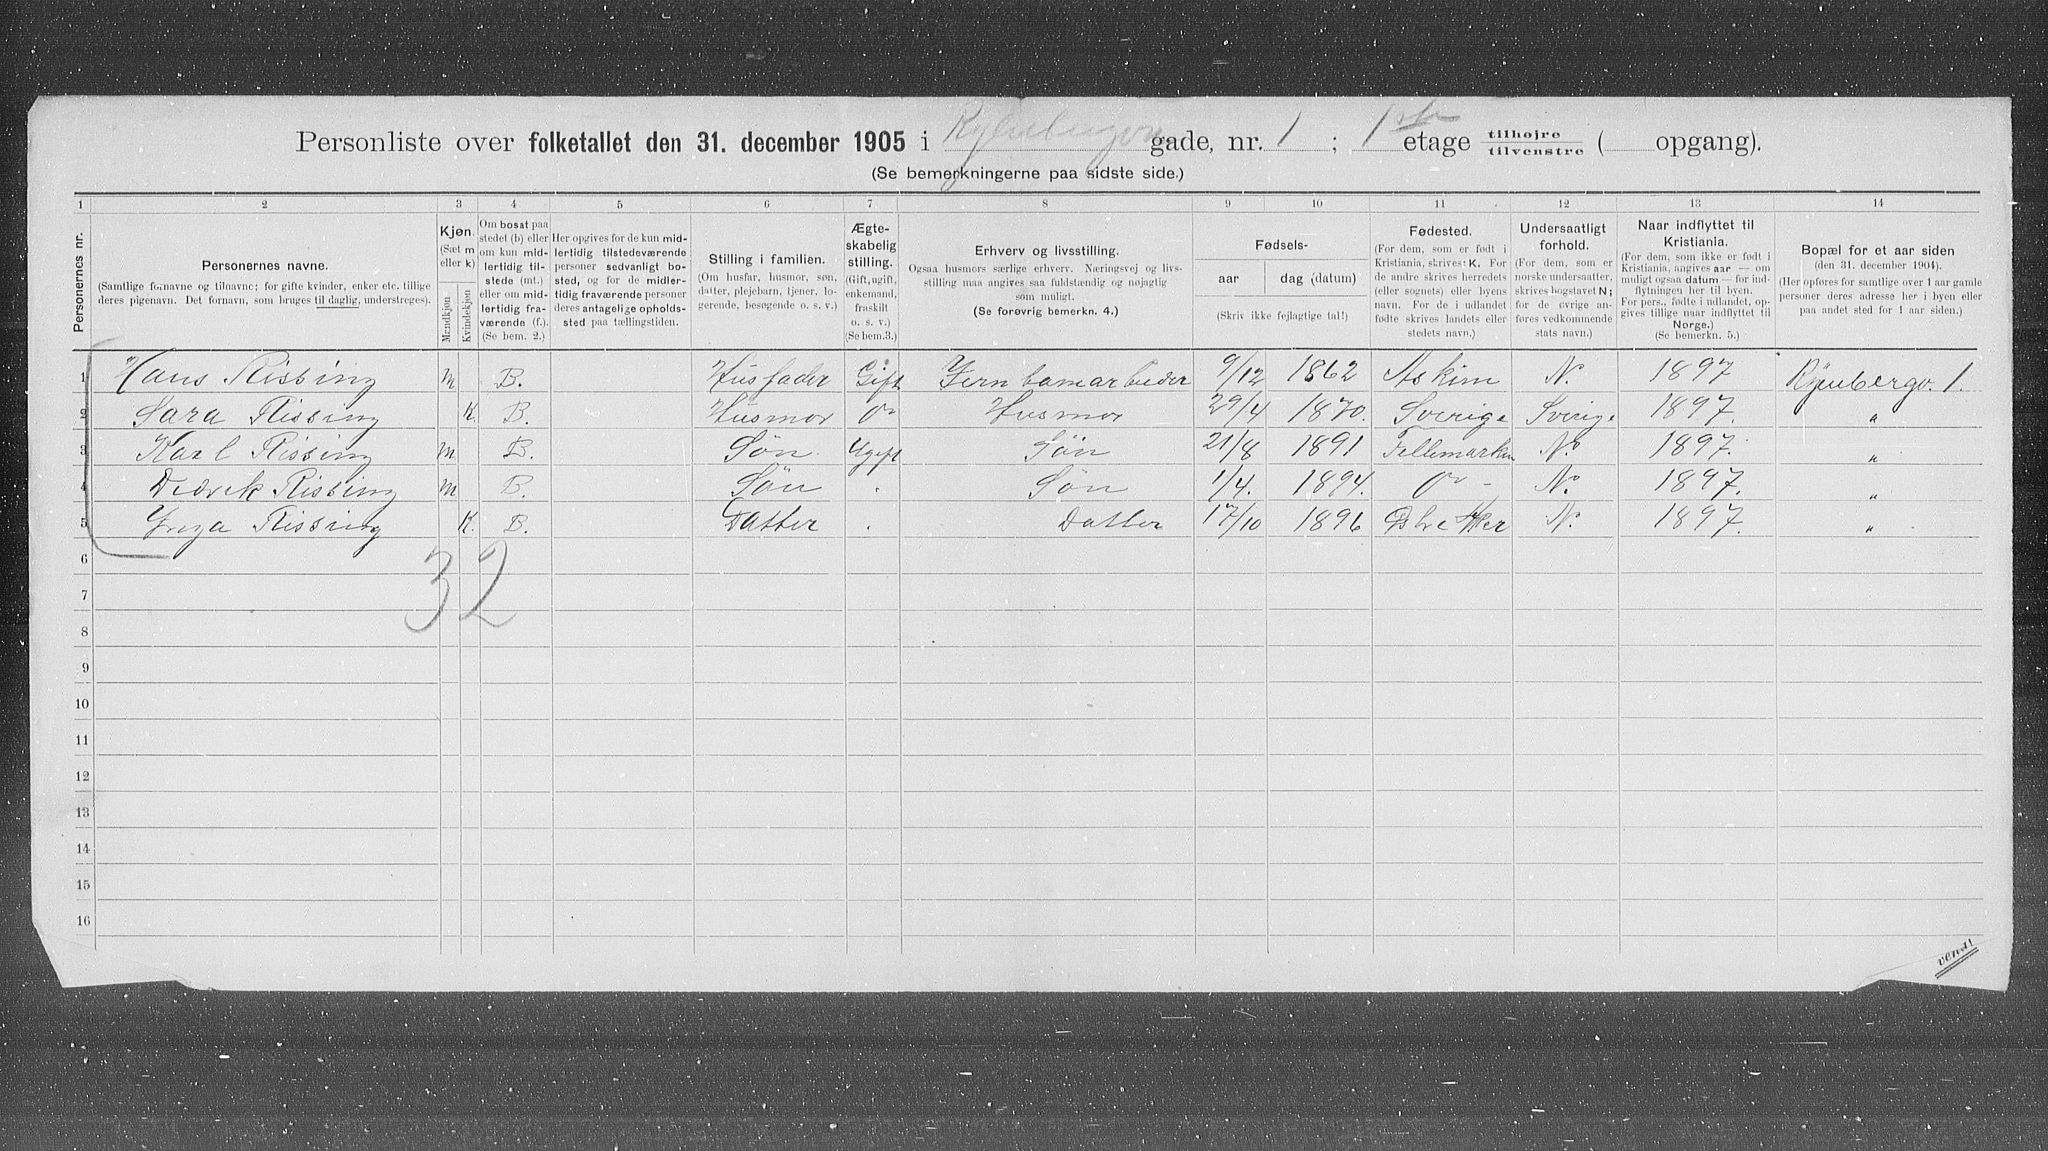 Personliste over folketallet den 31. december 1905 i gade, nr. 1 ; 1ste etage tilhøjre tilvenstre ( opgang).
(Se bemerkningerne paa sidste side.)
1 2 3 4 5 6 7 8 9 10 11 12 13 14
Personernes nr.
Personernes navne.
(Samtlige fornavne og tilnavne; for gifte kvinder, enker etc. tillige
deres pigenavn. Det fornavn, som bruges til daglig, understreges).
Kjøn.
(Sæt m
eller k)
Mandkjøn.
Kvindekjøn
Om bosat paa
stedet (b) eller
om kun mid-
lertidig til-
stede (mt.)
eller om mid-
lertidig fra-
værende (f.).
(Se bem. 2.)
Her opgives for de kun mid-
lertidig tilstedeværende
personer sedvanligt bo-
sted, og for de midler-
tidig fraværende personer
deres antagelige opholds-
sted paa tællingstiden.
Stilling i familien.
(Om husfar, husmor, søn,
datter, plejebarn, tjener, lo-
gerende, besøgende o. s. v.)
Ægte-
skabelig
stilling.
(Gift, ugift,
enkemand,
fraskilt
o. s. v.)
(Se bem.3.)
Erhverv og livsstilling.
Ogsaa husmors særlige erhverv. Næringsvej og livs-
stilling maa angives saa fuldstændig og nøjagtig
som muligt.
(Se forøvrig bemerkn. 4.)
Fødsels-
aar dag (datum)
(Skriv ikke fejlagtige tal!)
Fødested.
(For dem, som er født i
Kristiania, skrives: K. For
de andre skrives herredets
(eller sognets) eller byens
navn. For de i udlandet
fødte skrives landets eller
stedets navn.)
Undersaatligt
forhold.
(For dem, som er
norske undersaatter,
skrives bogstavet N;
for de øvrige an-
føres vedkommende
stats navn.)
Naar indflyttet til
Kristiania.
(For dem, som ikke er født i
Kristiania, angives aar — om
muligt ogsaa datum — for ind-
flytningen her til byen.
For pers., fødte i udlandet, op-
gives tillige naar indflyttet til
Norge.)
(Se bemerkn. 5.)
Bopæl for et aar siden
(den 31. december 1904).
(Her opføres for samtlige over 1 aar gamle
personer deres adresse her i byen eller
paa andet sted for 1 aar siden.)
1 Hans Rissing m B. Husfader Gift 9/12 1862 Askim N. 1897 1.
2 Sara Rissing K. B. Husmor Husmor 29/4 1870. Sverige Sverige 1897. "
3 Karl Rissing m B. Søn Ugift Søn 21/8 1891 Tellemarken N. 1897. "
4 Rissing m B. Søn . Søn 1/4. 1894. - N. 1897. "
5 Rissing K. B. Datter . Datter 17/10 1896 Aker N. 1897. "
6
32
7
8
9
10
11
12
13
14
15
16
vend!